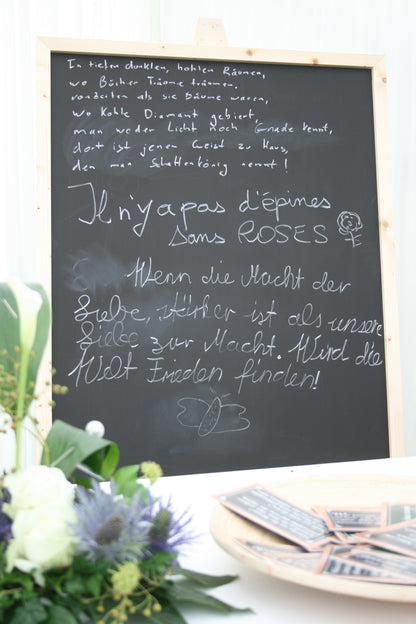 In tiefen dunklen, hohlen Räumen,
wo Bücher Träume träumen,
vorzeiten als sie Bäume waren,
wo Kohle Diamant gebiert,
man weder Licht noch Gnade kennt,
dort ist jener Geist zu Haus,
den man Schattenkönig nennt!
Il n'y a pas d'épines
sans ROSES
Wenn die Macht der
Liebe, stärker ist als unsere
Liebe zur Macht. Wird die
Welt Frieden finden!